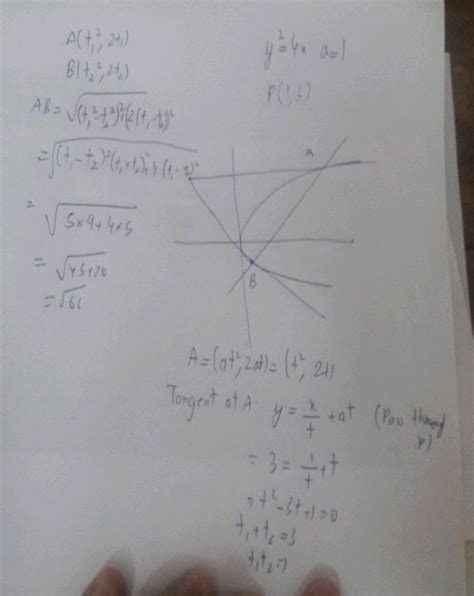 A(t₁², 2t₁)
B(t₂², 2t₂)
AB = √(t₁²-t₂²)²+(2(t₁-t₂))²
= √(t₁-t₂)²(t₁+t₂)²+4(t₁-t₂)²
= √5×9+4×5
= √45+20
= √65
y²=4x a=1
P(1,3)
A
B
A=(at²,2at)=(t², 2t)
Tangent at A y = x/t + at (Pass through P)
= 3 = 1/t + t
= t²-3t+1=0
t₁+t₂=3
t₁t₂=1